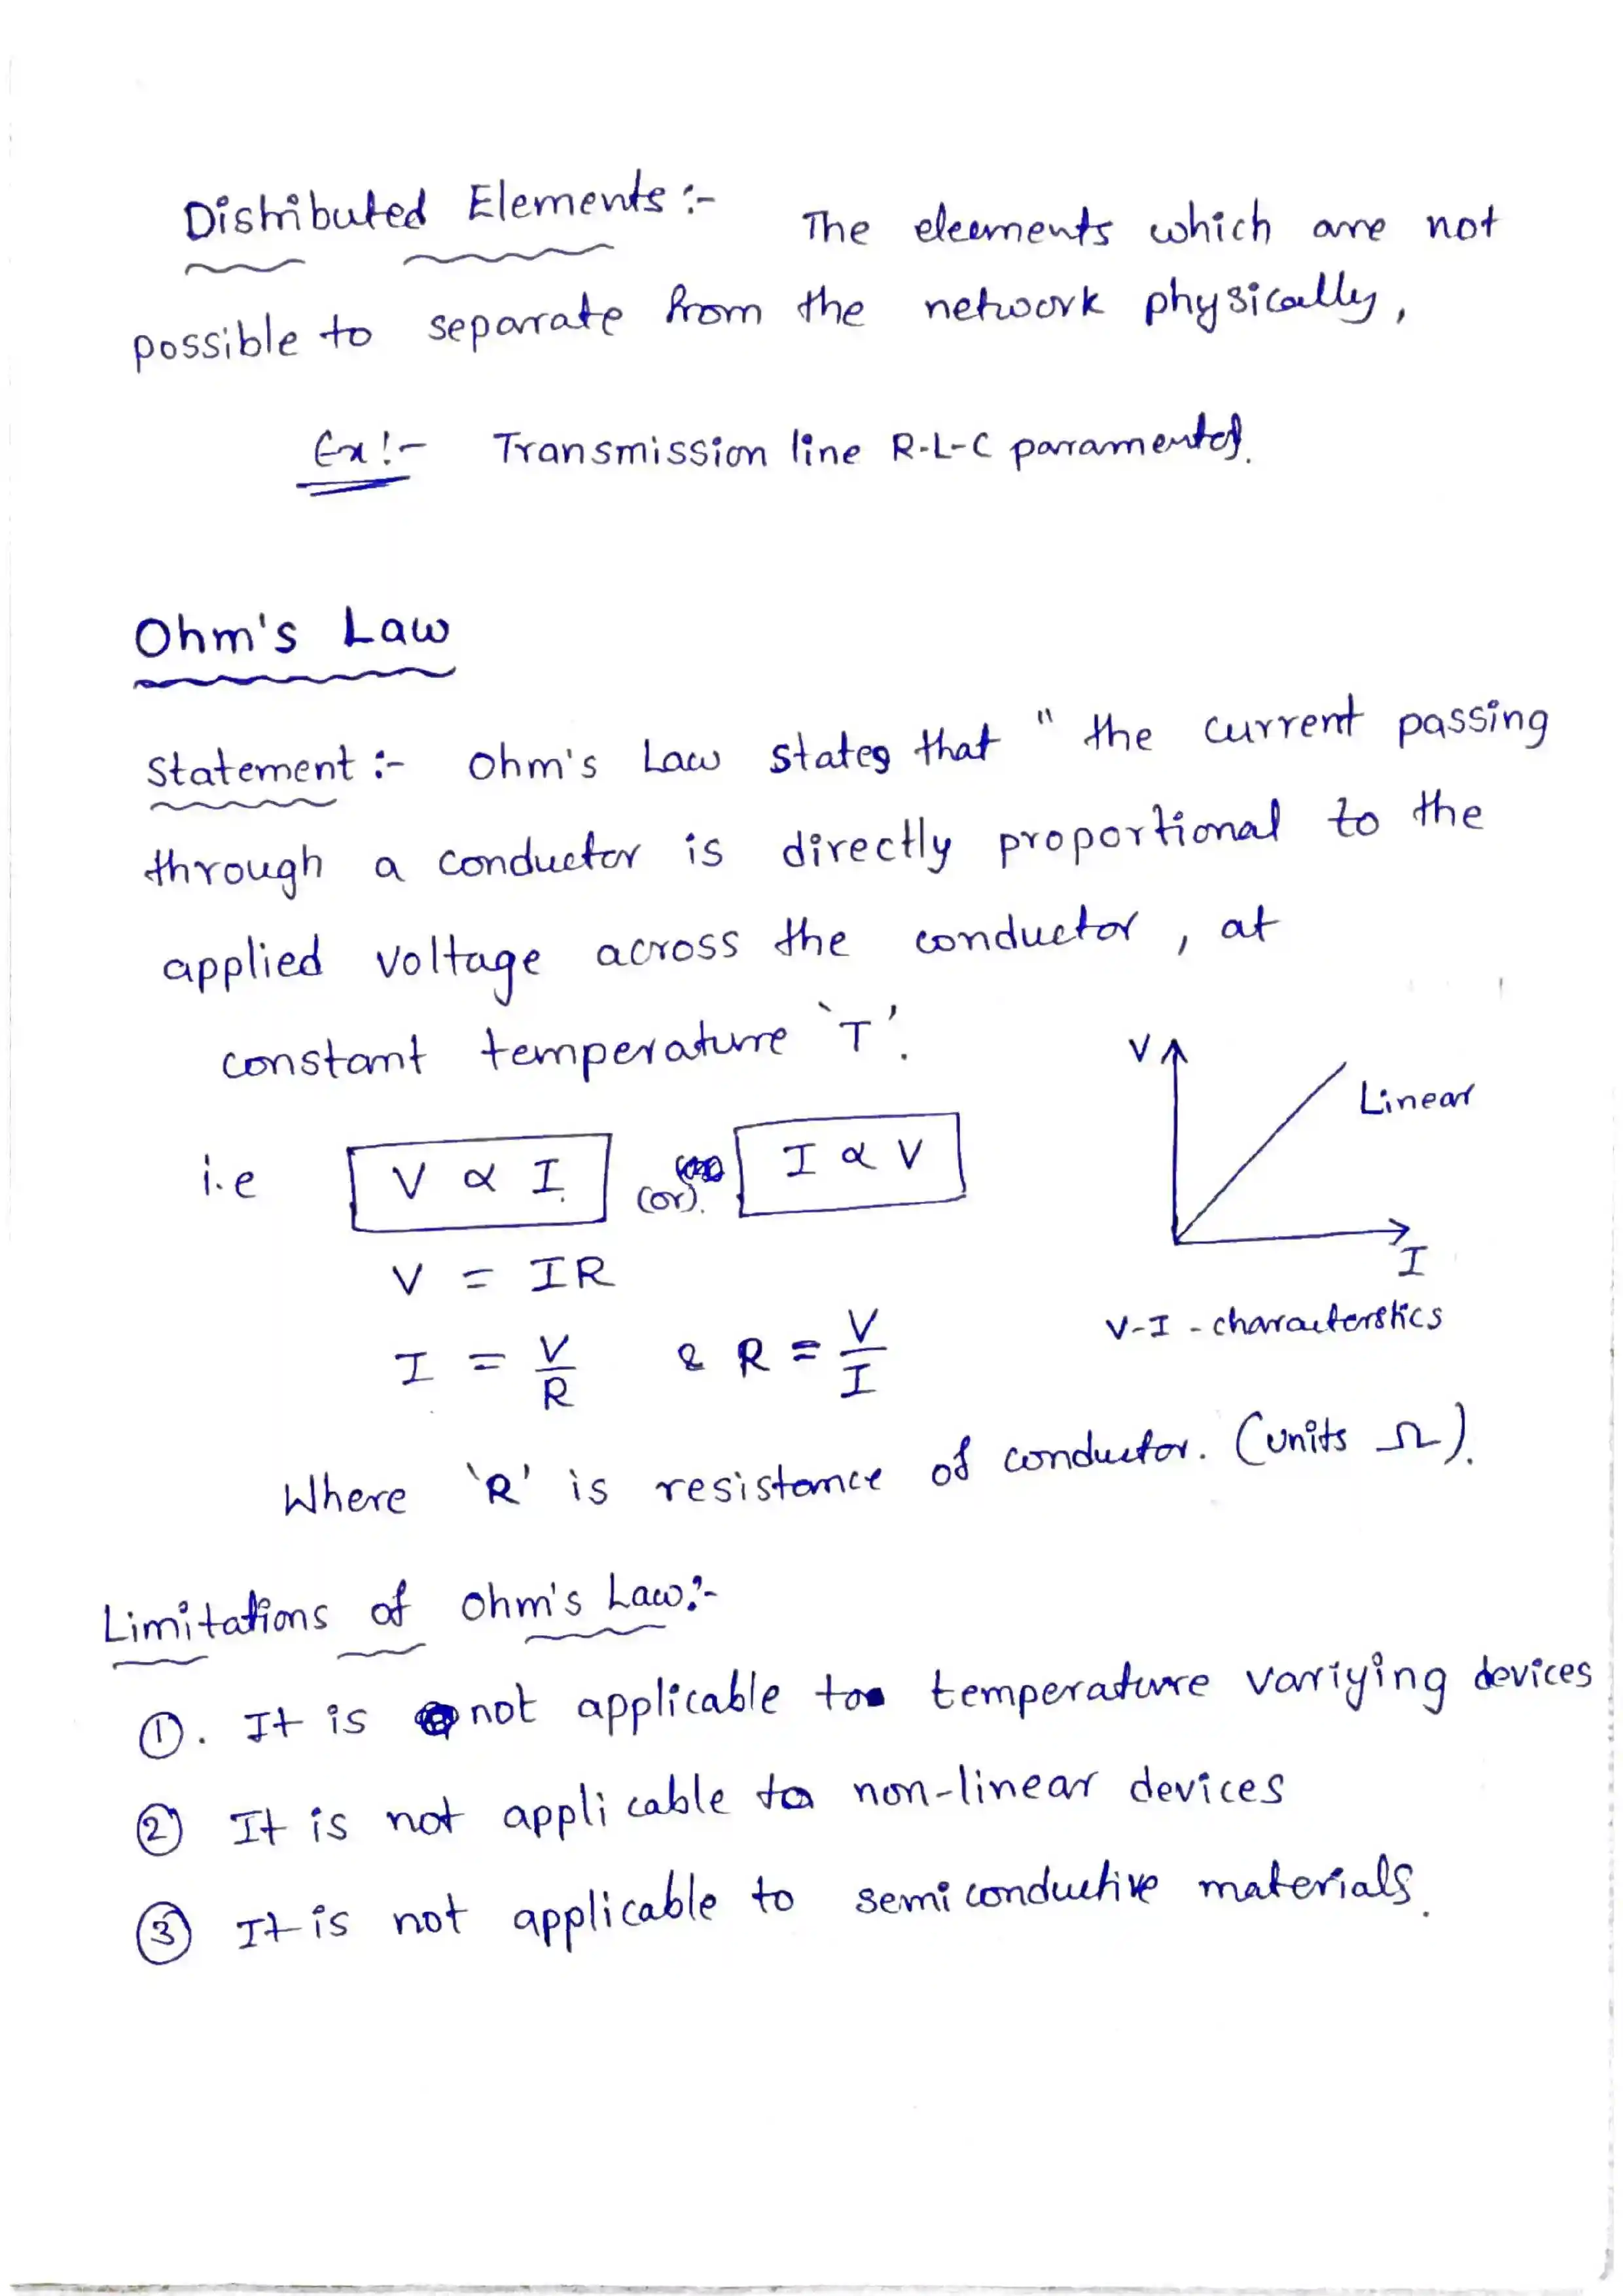 Distributed Elements :- The eleements which are not
possible to separate from the network physically,
Ex:- Transmission line R-L-C paramentes.
Ohm's Law
Statement :- Ohm's Law states that " the current passing
through a conductor is directly proportional to the
applied voltage across the conductor, at
constant temperature `T'.
V
Linear
I
V-I - characterstics
i.e V ∝ I. (or). I ∝ V
V = IR
I = V/R & R = V/I
Where 'R' is resistance of conductor. (units Ω).
Limitations of Ohm's Law:-
①. It is not applicable to temperature variying devices
② It is not applicable to non-linear devices
③ It is not applicable to semiconductive materials.